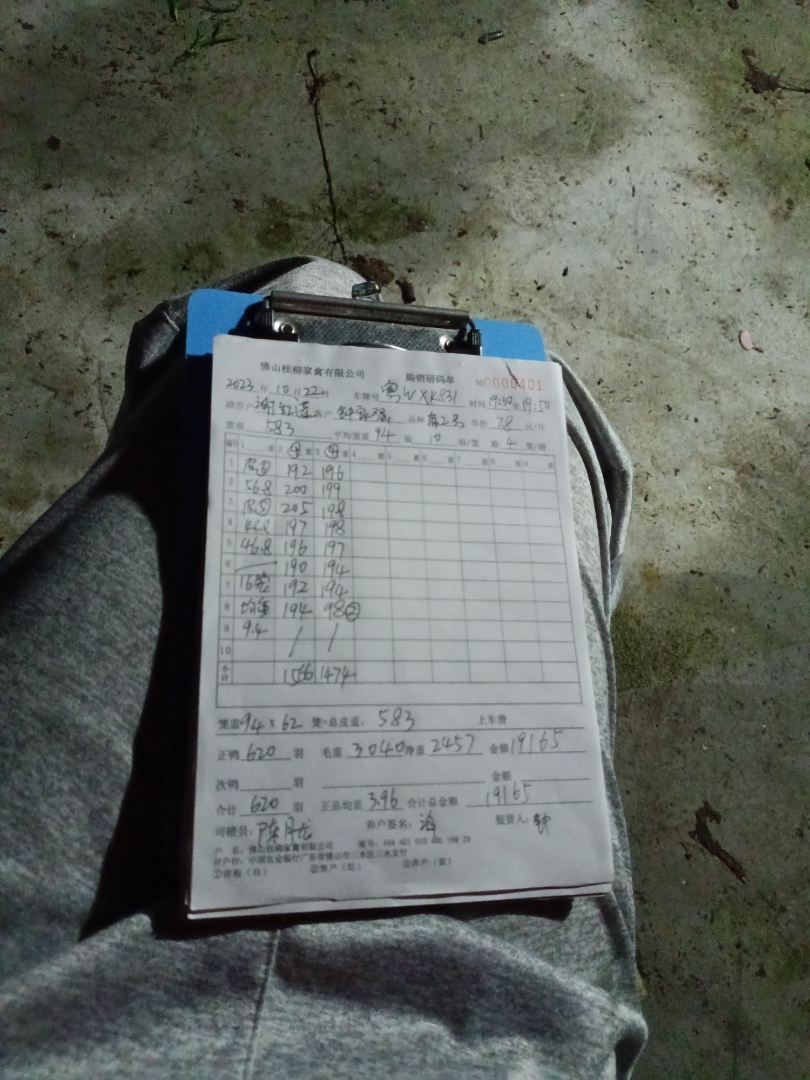 佛山桂柳家禽有限公司 购销磅码单 № 0000401
2023年10月22日 车牌号 粤WXK831 时间 至19:50
客户 品种 单价 7.8 元/斤
笼重 583 平均笼重 9.4 装 10 羽/笼 称 4 笼/磅
编号 1 重 2 ④ 重 3 ④ 重 4 重 5 重 6 重 7 重 8 重 9 重
1 192 196
2 56.8 200 199
3 205 198
4 46.8 197 198
5 46.8 196 197
6 190 194
7 16笼 192 194
8 均重 194 98②
9 9.4 / /
10
小计 1566 1474
笼重 9.4 × 62 笼=总皮重: 583 上车费
正鸭 620 羽 毛重 3040 净重 2457 金额 19165
次鸭 羽 金额
合计 620 羽 正品均重 3.96 合计总金额 19165
司磅员: 养户签名: 装货人:
户 名: 佛山桂柳家禽有限公司 账号:
开户行: 中国农业银行广东省佛山市三水区三水支行
①存根(白) ②客户(红) ③养户(黄)